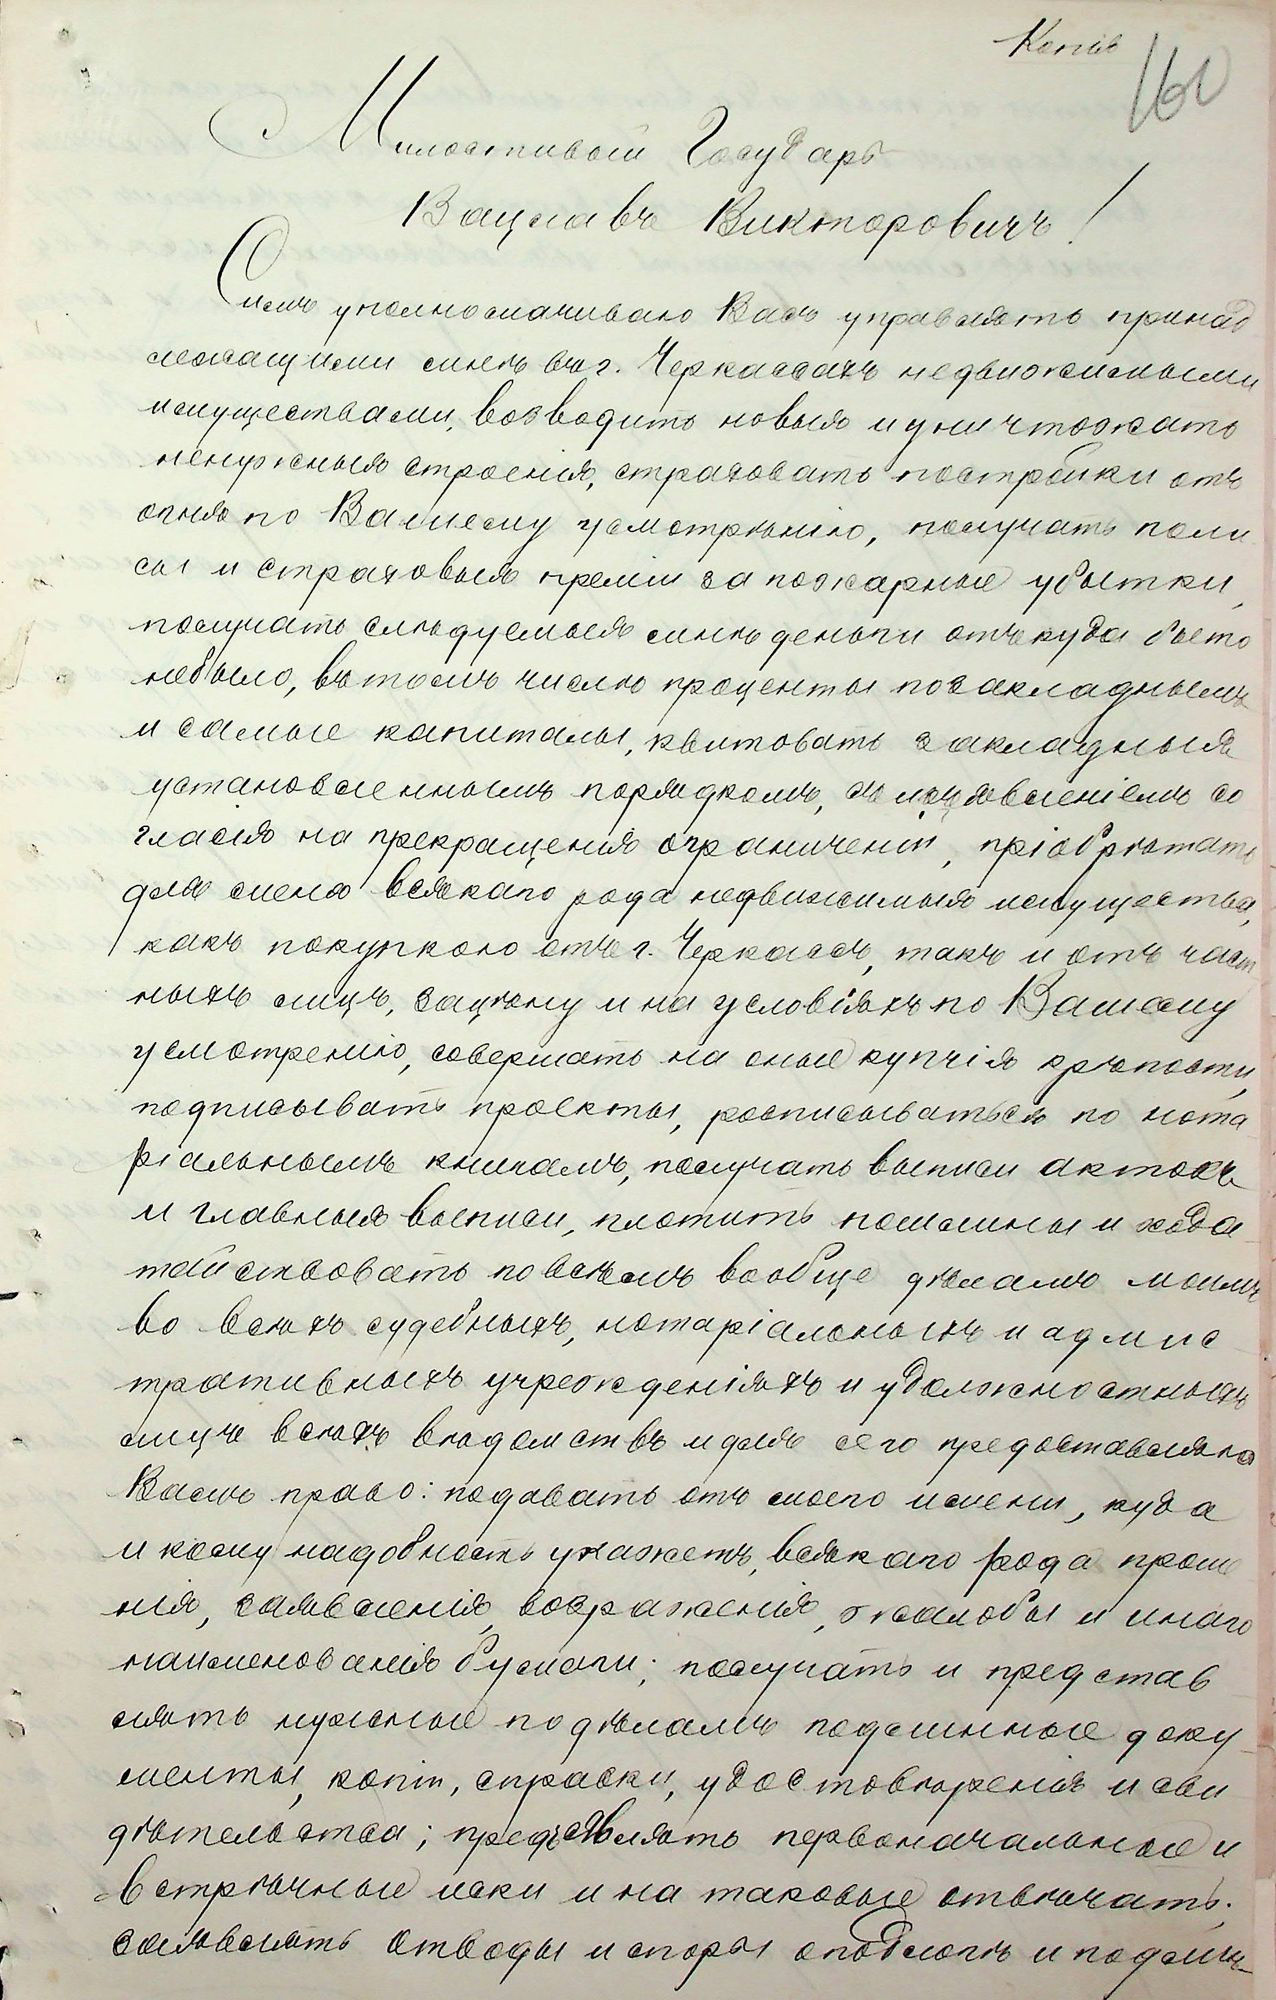 Копія
160
Милостивый Государь
Вацлавъ Викторовичъ!
Симъ уполномачиваю Васъ управлять принад
лежащими мнѣ въ г. Черкассахъ недвижимыми
имуществами, возводить новыя и уничтожать
ненужныя строенія, страховать постройки отъ
огня по Вашему усмотрѣнію, получать поли
сы и страховыя преміи за пожарные убытки,
получать слѣдуемыя мнѣ деньги откуда бы то
небыло, въ томъ числѣ проценты по закладнымъ
и самые капиталы, квитовать закладныя
установленнымъ порядкомъ, съ изъявленіемъ со
гласія на прекращенія ограниченій, пріобрѣтать
для меня всякаго рода недвижимыя имущества,
какъ покупкою отъ г. Черкассъ, такъ и отъ част
ныхъ лицъ, за цѣну и на условіяхъ по Вашему
усмотрению, совершать на оные купчія крѣпости,
подписывать проекты, росписываться по нота
ріальнымъ книгамъ, получать выписи актовъ
и главныя выписи, платить пошлины и хода
тайствовать по всѣмъ вообще дѣламъ моимъ
во всѣхъ судебныхъ, нотаріальныхъ и админис
тративныхъ учрежденіяхъ и у должностныхъ
лицъ всѣхъ вѣдомствъ и для сего предоставляю
Вамъ право: подавать отъ моего имени, куда
и кому надобность укажетъ, всякаго рода проше
нія, заявленія, возраженія, жалобы и инаго
наименованія бумаги; получать и представ
лять нужные по дѣламъ подлинные доку
менты, копіи, справки, удостовѣренія и сви
дѣтельства; предъявлять первоначальные и
встрѣчные иски и на таковые отвѣчать;
заявлять отводы и споры о подлогѣ и подлин